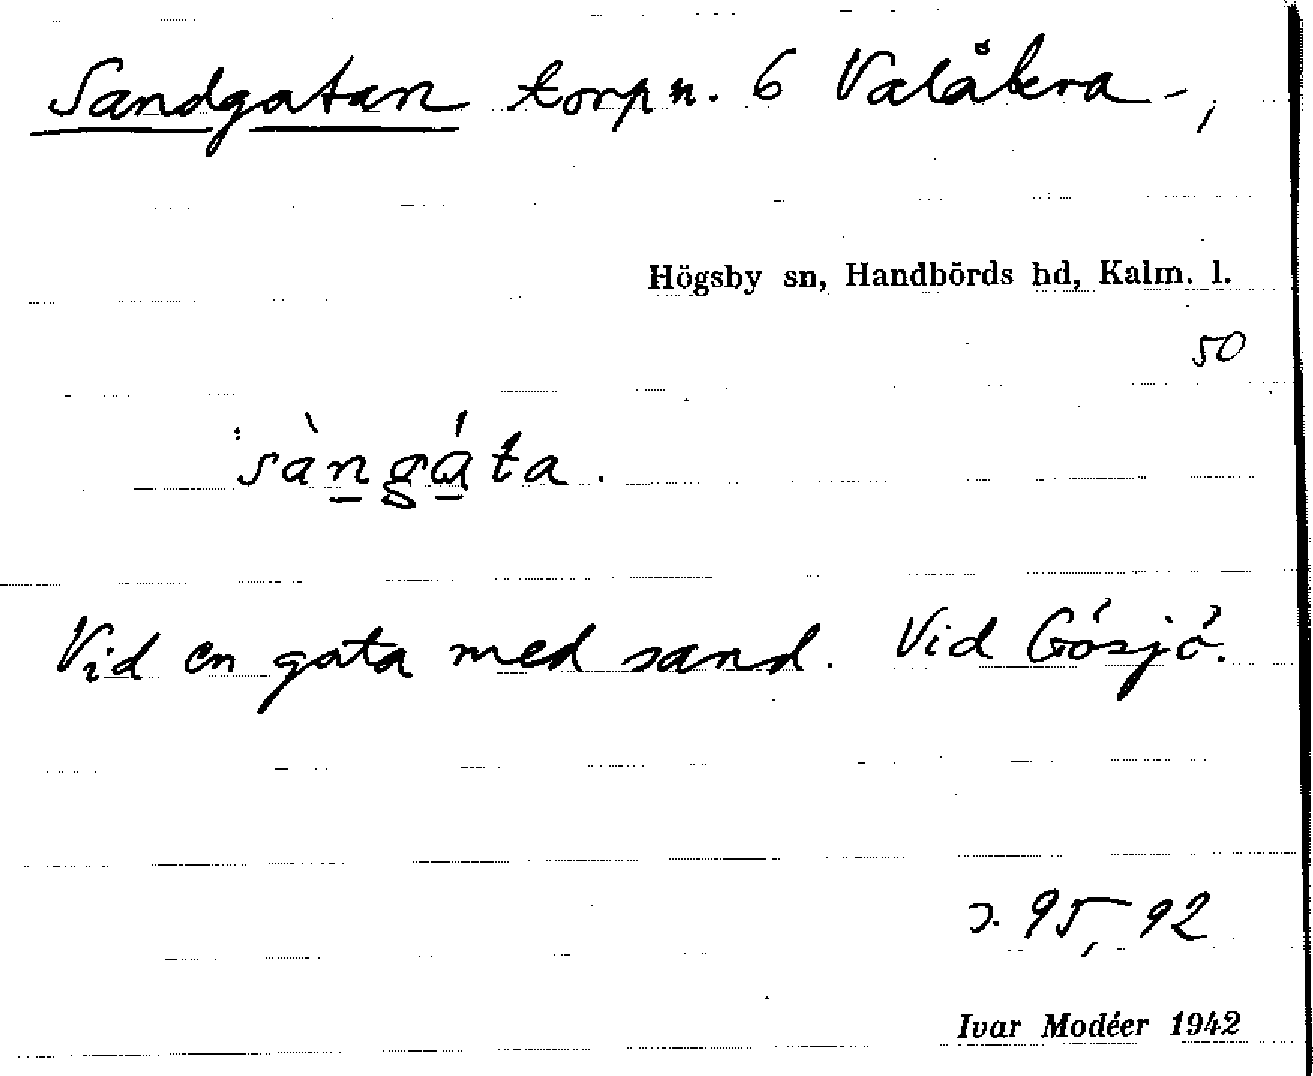 Sandgatan torpn. 6 Valåkra -,
Högsby sn, Handbörds hd, Kalm. l.
50
sàngáta.
Vid en gata med sand. Vid Gósjö.
s. 95, 92
Ivar Modéer 1942